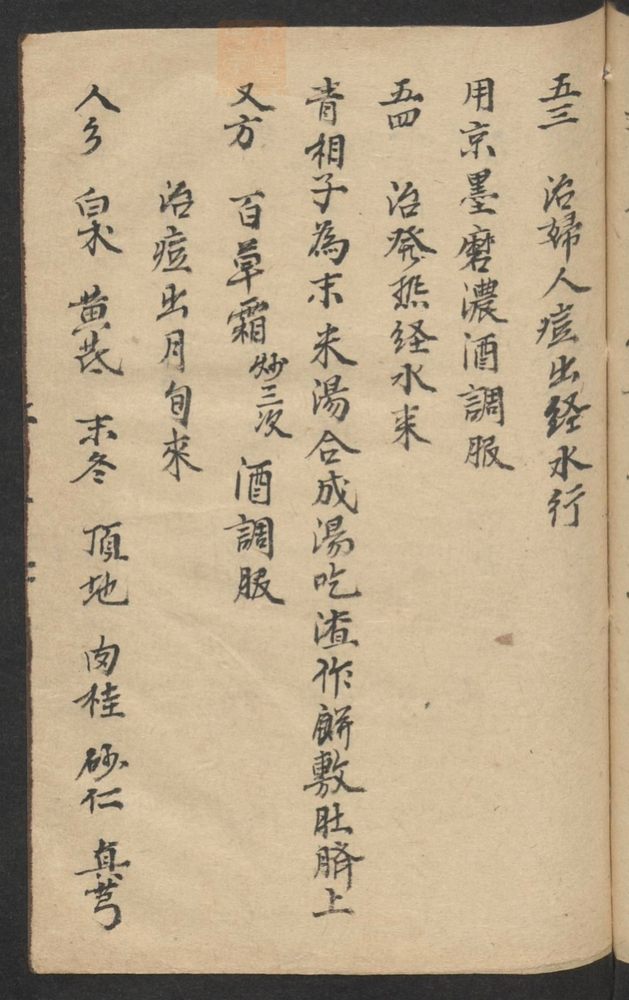 五三 治婦人痘出経水行
用京墨磨濃酒調服
五四 治發熱経水来
青相子為末米湯合成湯吃渣作餅敷肚臍上
又方 百草霜炒三次 酒調服
治痘出月旬来
人参 白术 黄芪 末冬 頂地 肉桂 砂仁 真芎